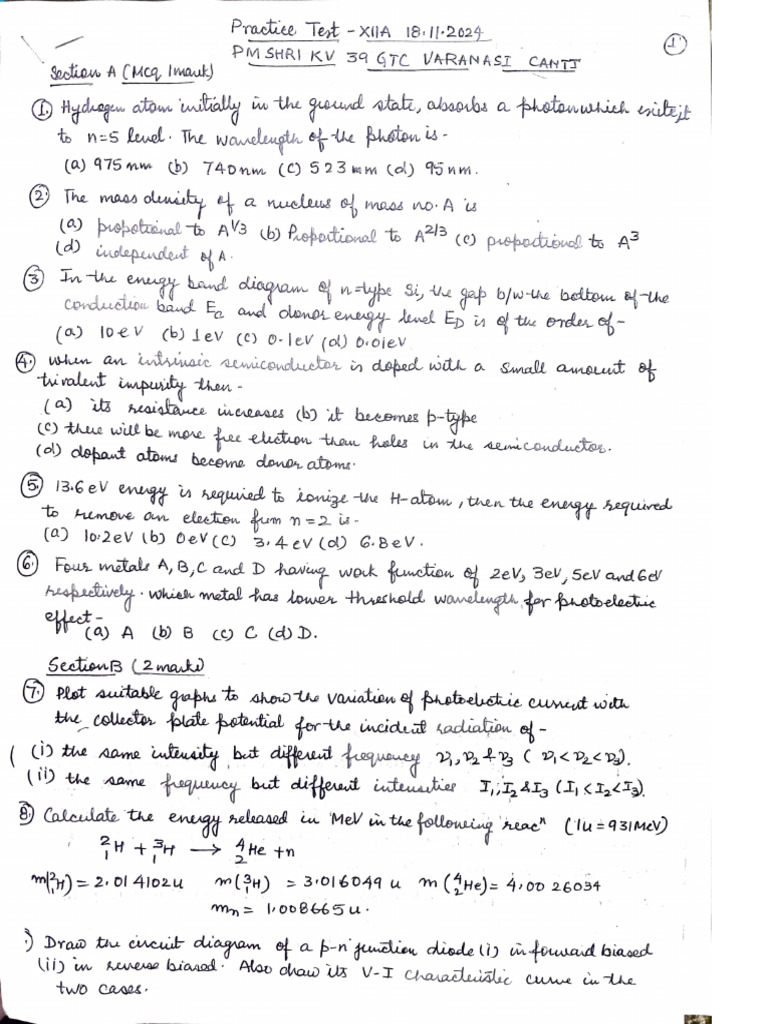 Practice Test - XIIA 18.11.2024
1
PM SHRI KV 39 GTC VARANASI CANTT
Section A (MCQ 1mark)
1. Hydrogen atom initially in the ground state, absorbs a photon which exites it
to n=5 level. The wavelength of the photon is -
(a) 975 nm (b) 740 nm (c) 523 nm (d) 95 nm.
2. The mass density of a nucleus of mass no. A is
(a) propotional to A^1/3 (b) Proportional to A^2/3 (c) propotional to A^3
(d) independent of A.
3 In the energy band diagram of n-type Si, the gap b/w the bottom of the
conduction band Ec and donor energy level ED is of the order of -
(a) 10eV (b) 1eV (c) 0.1eV (d) 0.01eV
4. when an intrinsic semiconductor is doped with a small amount of
trivalent impurity then -
(a) its resistance increases (b) it becomes p-type
(c) there will be more free electron than holes in the semiconductor.
(d) dopant atoms become donor atoms.
5. 13.6 eV energy is required to ionize the H-atom, then the energy required
to remove an electron from n=2 is -
(a) 10.2eV (b) 0eV (c) 3.4eV (d) 6.8eV.
6. Four metals A, B, C and D having work function of 2eV, 3eV, 5eV and 6eV
respectively. which metal has lower threshold wavelength for photoelectric
effect -
(a) A (b) B (c) C (d) D.
Section B (2 marks)
7. Plot suitable graphs to show the variation of photoelectric current with
the collector plate potential for the incident radiation of -
(i) the same intensity but different frequency ν1, ν2 & ν3 (ν1 < ν2 < ν3).
(ii) the same frequency but different intensities I1, I2 & I3 (I1 < I2 < I3).
8. Calculate the energy released in MeV in the following reacⁿ (1u = 931 MeV)
²₁H + ³₁H → ⁴₂He + n
m(²₁H) = 2.014102u m(³₁H) = 3.016049 u m(⁴₂He) = 4.0026034
mn = 1.008665 u.
) Draw the circuit diagram of a p-n junction diode (i) in forward biased
(ii) in reverse biased. Also draw its V-I characteristic curve in the
two cases.